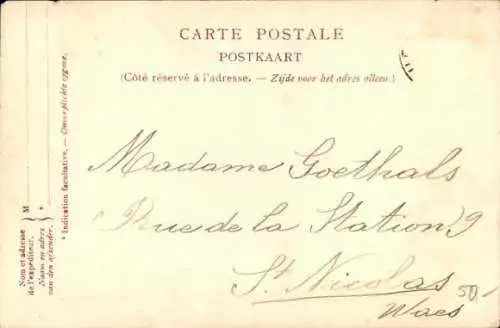 CARTE POSTALE
POSTKAART
(Côté réservé à l'adresse. — Zijde voor het adres alleen.)
Madame Goethals
Rue de la Station 9
St Nicolas
Waes
50,-
Nom et adresse
de l'expéditeur.
Naam en adres
van den afzender.
M
*
* Indication facultative. — Onverplichte opgave.